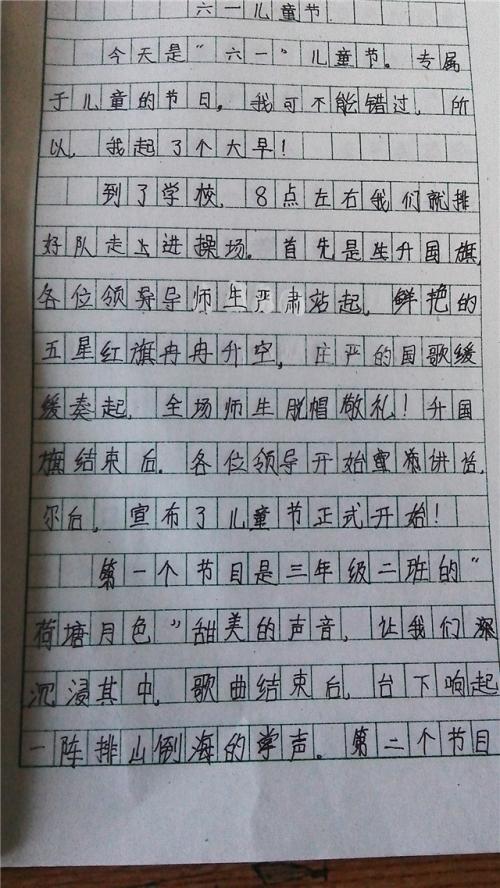 六一儿童节
今天是“六一”儿童节。专属
于儿童的节日，我可不能错过，所
以，我起了个大早！
到了学校，8点左右我们就排
好队走上进操场。首先是生升国旗，
各位领导导师生严肃站起，鲜艳的
五星红旗冉冉升空，庄严的国歌缓
缓奏起，全场师生脱帽敬礼！升国
旗结束后，各位领导开始讲首，
尔后，宣布了儿童节正式开始！
第一个节目是三年级二班的“
荷塘月色”甜美的声音，让我们深
沉浸其中，歌曲结束后，台下响起
一阵排山倒海的掌声。第二个节目